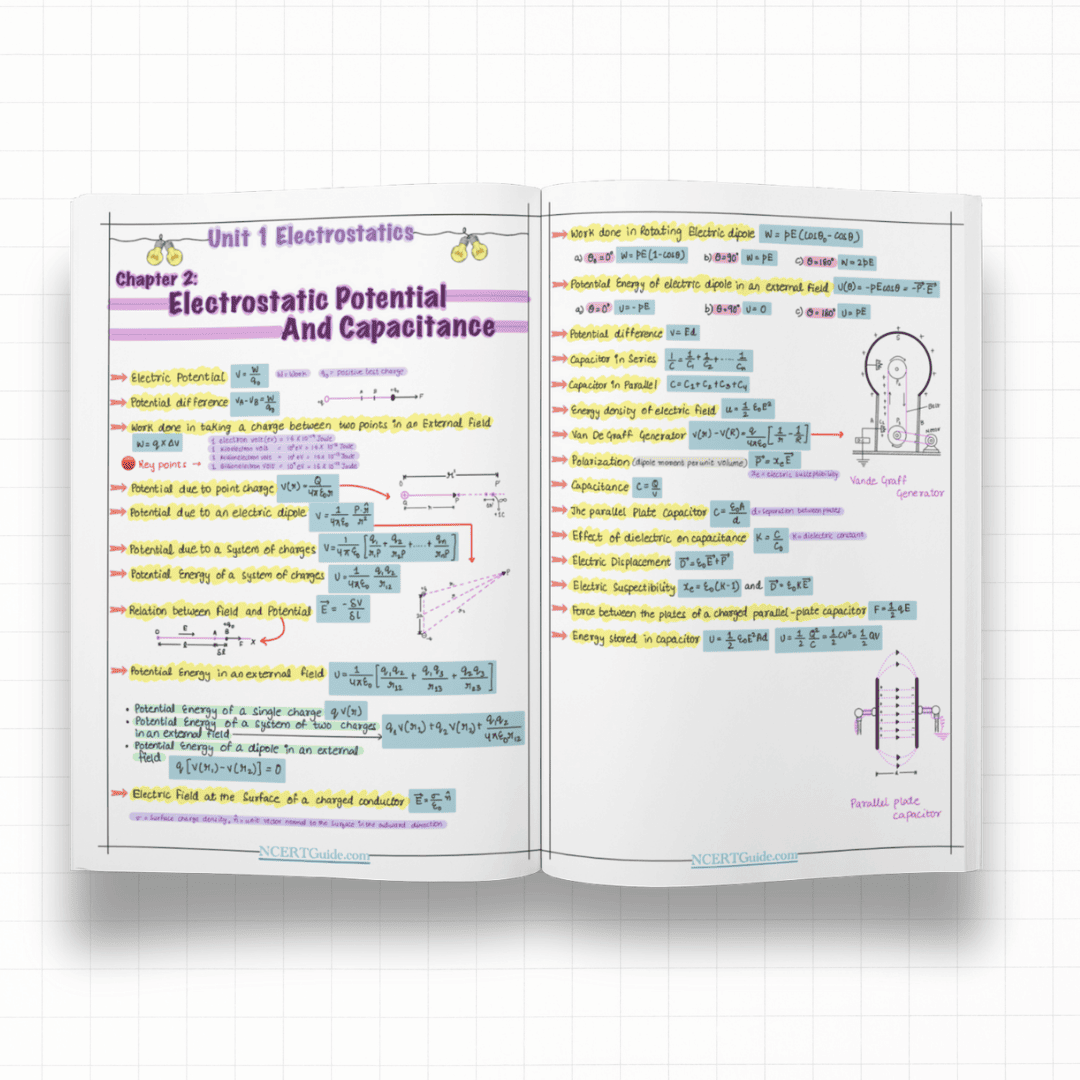 Unit 1 Electrostatics
Chapter 2:
Electrostatic Potential
And Capacitance
Electric Potential V = W/q₀ W = Work q₀ = positive test charge
Potential difference Vᴀ - Vʙ = W/q₀
Work done in taking a charge between two points in an External Field
W = q × ΔV
Key points →
Potential due to point charge V(r) = Q/4πε₀r
Potential due to an electric dipole V = 1/4πε₀ P·r̂/r²
Potential due to a System of charges V = 1/4πε₀ [q₁/r₁P + q₂/r₂P + ..... + qₙ/rₙP]
Potential Energy of a system of charges U = 1/4πε₀ q₁q₂/r₁₂
Relation between field and Potential E⃗ = -δV/δl
Potential Energy in an external field U = 1/4πε₀ [q₁q₂/r₁₂ + q₁q₃/r₁₃ + q₂q₃/r₂₃]
• Potential Energy of a single charge q V(r)
• Potential Energy of a system of two charges
in an external field q₁V(r₁) + q₂V(r₂) + q₁q₂/4πε₀r₁₂
• Potential Energy of a dipole in an external
field
q[V(r₁) - V(r₂)] = 0
Electric Field at the Surface of a charged conductor E⃗ = σ/ε₀ n̂
σ = Surface charge density, n̂ = unit vector normal to the surface in the outward direction
NCERTGuide.com
Work done in Rotating Electric dipole W = pE(cosθ₀ - cosθ)
a) θ₀ = 0° W = PE(1-cosθ) b) θ = 90° W = PE c) θ = 180° W = 2PE
Potential Energy of electric dipole in an external field U(θ) = -pEcosθ = -P⃗·E⃗
a) θ = 0° U = -PE b) θ = 90° U = 0 c) θ = 180° U = PE
Potential difference V = Ed
Capacitor in Series 1/C = 1/C₁ + 1/C₂ + ... 1/Cₙ
Capacitor in Parallel C = C₁ + C₂ + C₃ + C₄
Energy density of electric field u = 1/2 ε₀E²
Van De Graff Generator V(r) - V(R) = q/4πε₀ [1/r - 1/R]
Polarization (dipole moment per unit volume) P⃗ = χₑE⃗
χₑ = electric susceptibility
Capacitance C = Q/V
The parallel Plate Capacitor C = ε₀A/d d = separation between plates
Effect of dielectric on capacitance K = C/C₀ K = dielectric constant
Electric Displacement D⃗ = ε₀E⃗ + P⃗
Electric Suspectibility χₑ = ε₀(K-1) and D⃗ = ε₀KE⃗
Force between the plates of a charged parallel-plate capacitor F = 1/2 qE
Energy stored in Capacitor U = 1/2 ε₀E²Ad U = 1/2 Q²/C = 1/2 CV² = 1/2 QV
Vande Graff
Generator
Parallel plate
capacitor
NCERTGuide.com